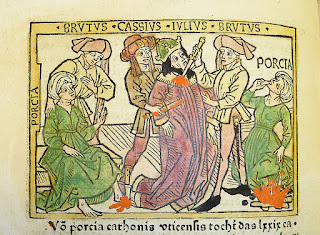 BRVTVS · CASSIVS · IVLIVS · BRVTVS ·
PORCIA
PORCIA
Võ porcia cathonis vticensis tocht̃ das lxxix ca